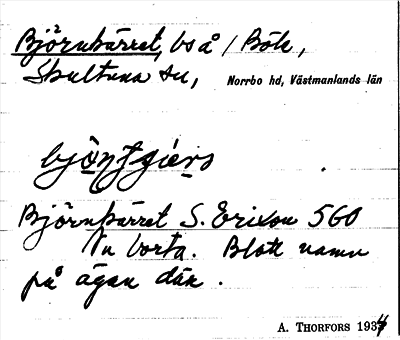 Björnkärret, bs å / Böle,
Skultuna sn, Norrbo hd, Västmanlands län
Björnkärret S. Erixon 560
Nu borta. Blott namn
på ägan där.
A. THORFORS 1934